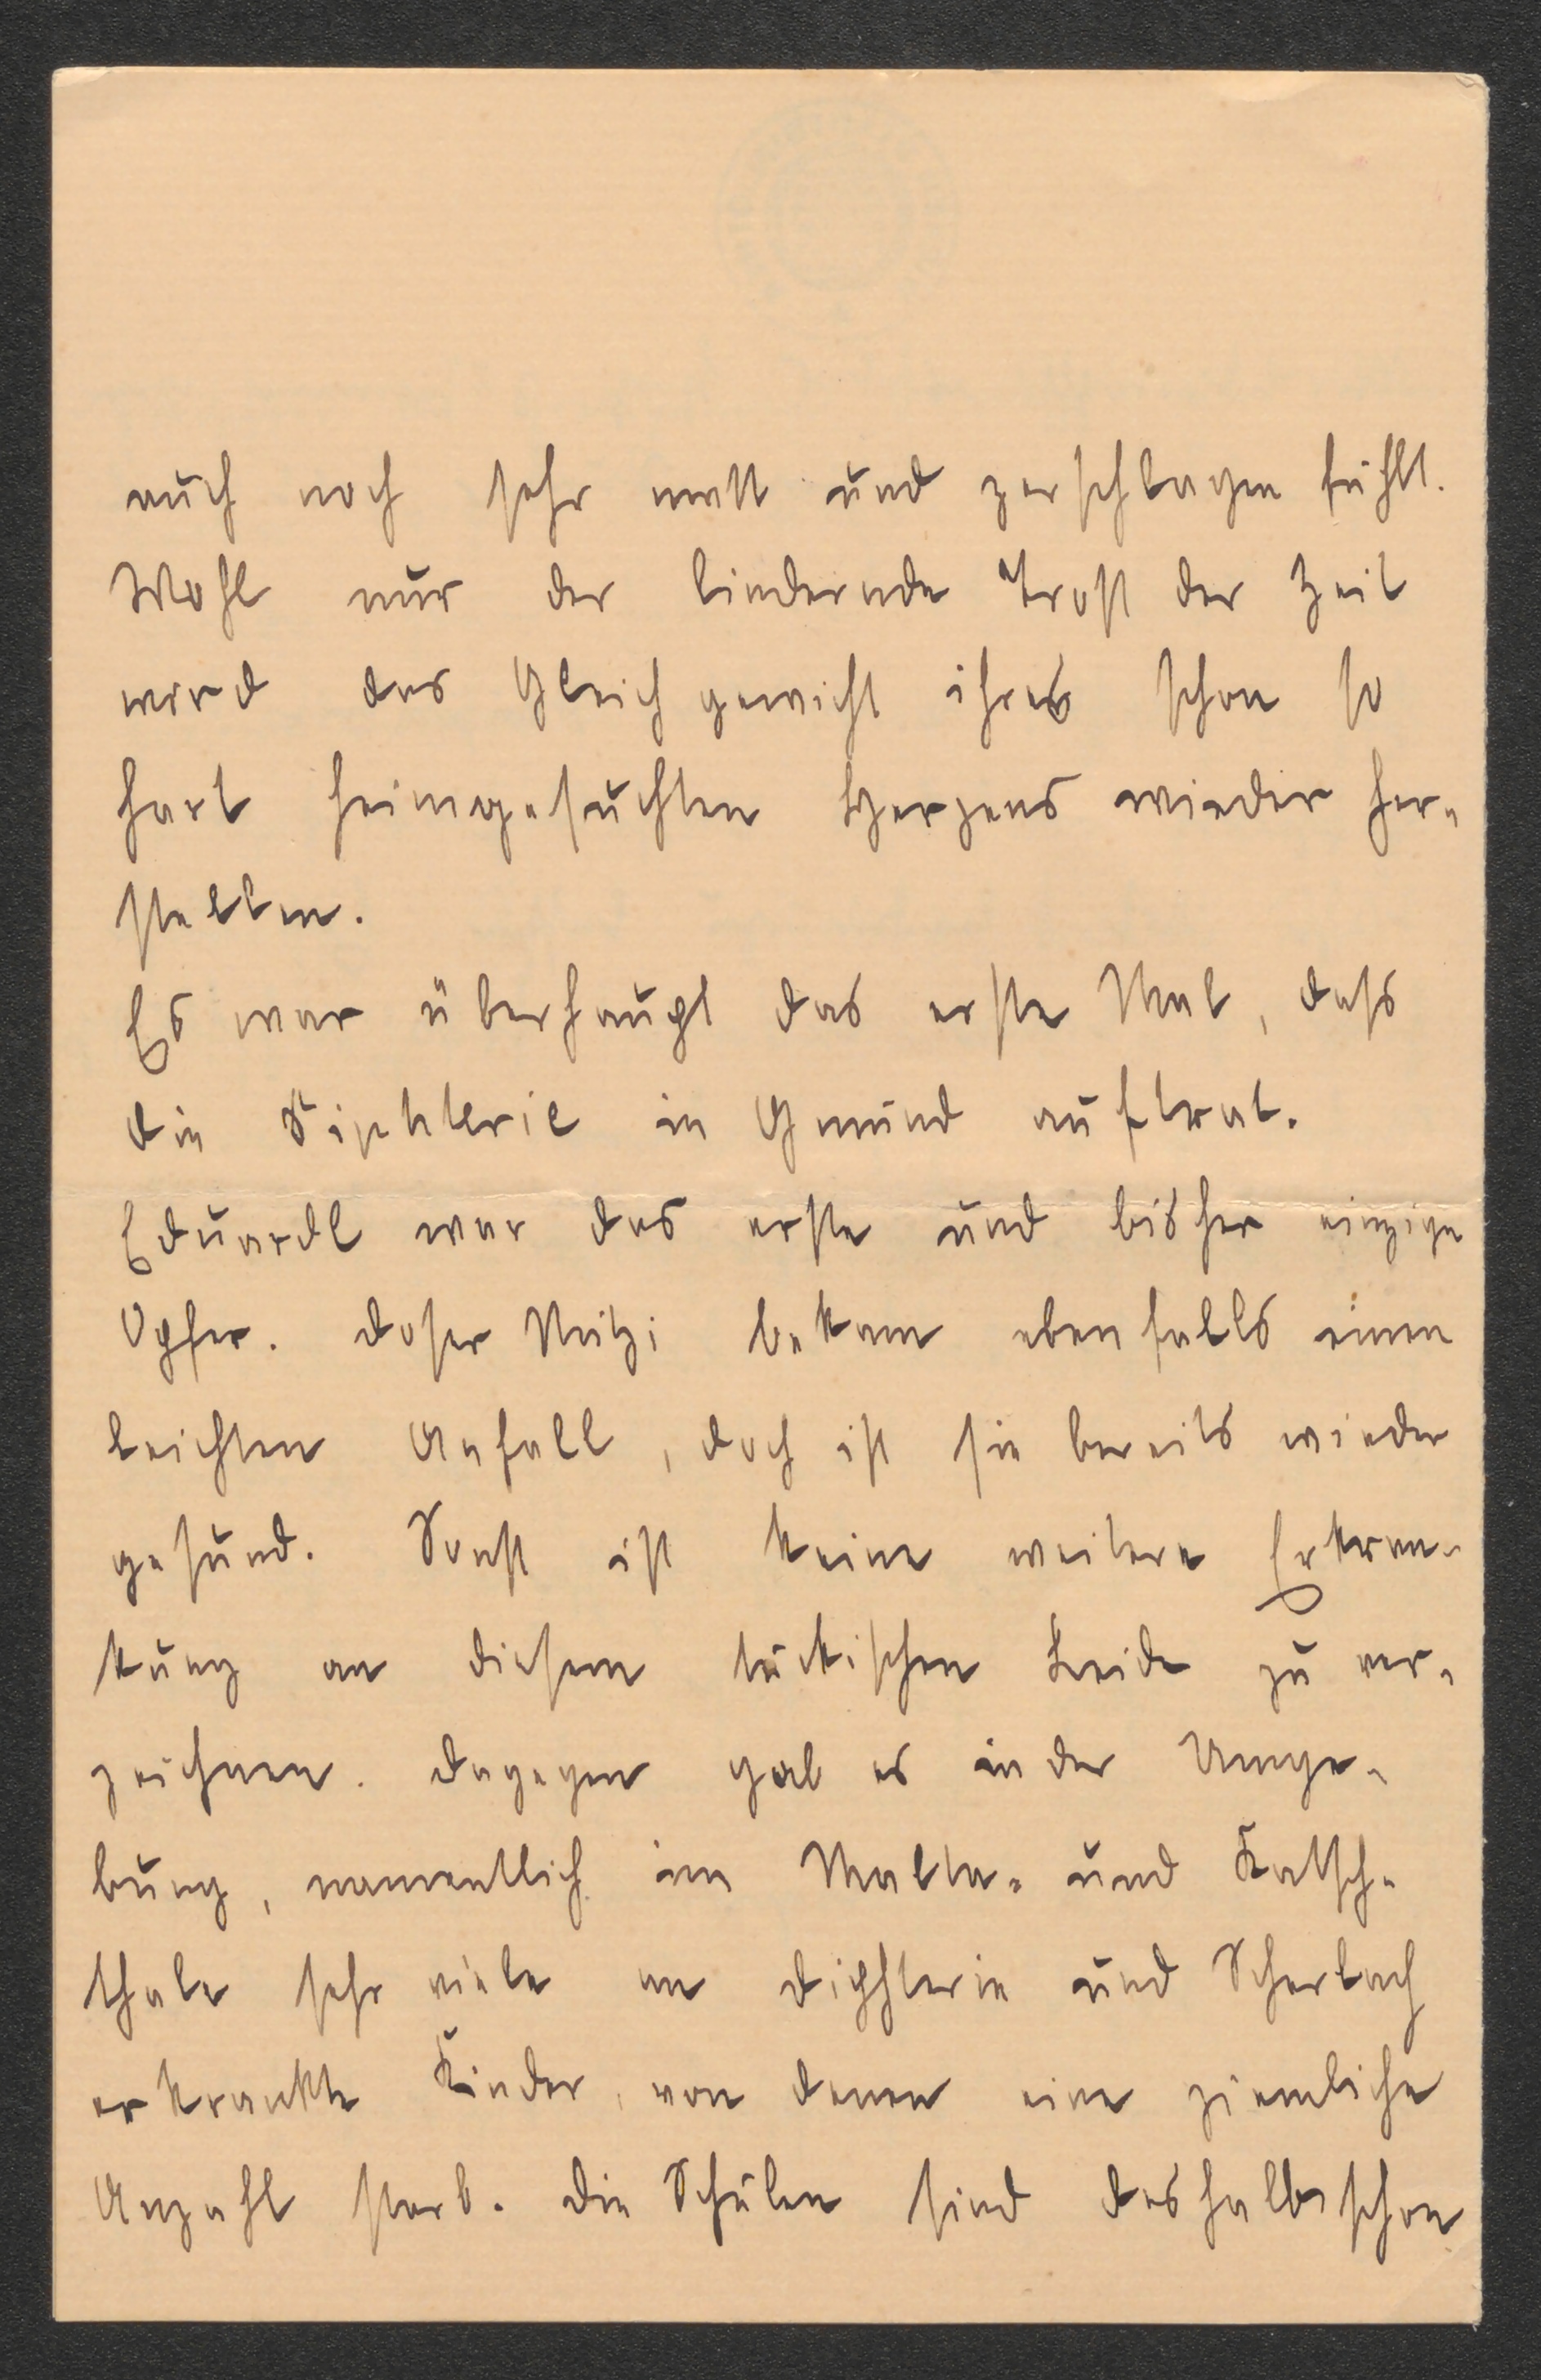 auch noch sehr matt und zerschlagen fühlt.
Wohl nur der lindernde Trost der Zeit
wird das Gleichgewicht ihres schon so
hart heimgesuchten Herzens wieder her-
stellen.
Es war überhaupt das erste Mal, dass
die Diphterie in Gmünd auftrat.
Eduardl war das erste und bisher einzige
Opfer. Doser Mitzi bekam ebenfalls einen
leichten Anfall, doch ist sie bereits wieder
gesund. Sonst ist keine weitere Erkran-
kung an diesem tückischen Leide zu ver-
zeichnen. Dagegen gab es in der Umge-
bung, namentlich im Malta- und Katsch-
thale sehr viele an Diphterie und Scharlach
erkrankte Kinder, von denen eine ziemliche
Anzahl starb. Die Schulen sind deshalb schon